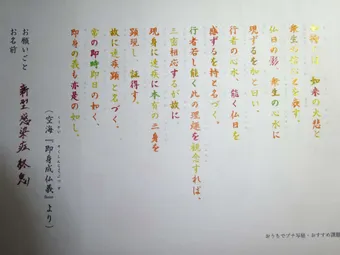 おうちでプチ写経・おすすめ課題
加持とは、如来の大悲と
衆生の信心とを表す。
仏日の影、衆生の心水に
現ずるを加と曰い、
行者の心水、能く仏日を
感ずるを持と名づく。
行者若し能く此の理趣を観念すれば、
三密相応するが故に
現身に速疾に本有の三身を
顕現し 証得す。
故に速疾顕と名づく。
常の即時即日の如く、
即身の義も亦是の如し。
(空海『即身成仏義』より)
お願いごと 新型感染症 終息
お名前